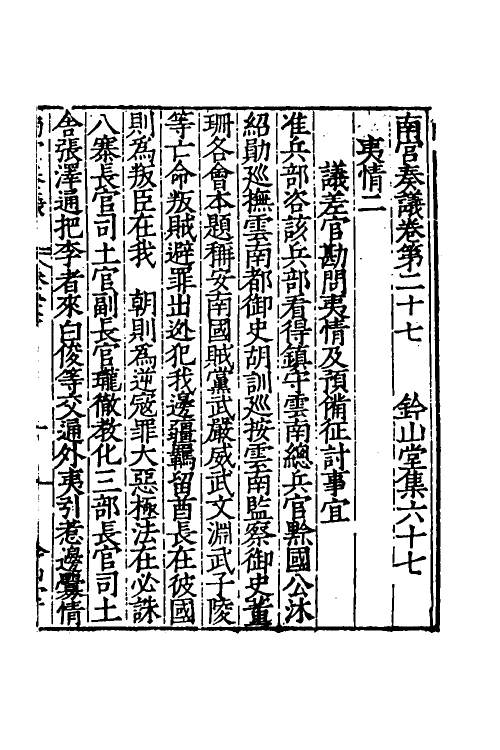 南宮奏議卷第二十七　鈐山堂集六十七
夷情二
議差官勘問夷情及預備征討事宜
准兵部咨該兵部看得鎮守雲南總兵官黔國公沐
紹勛巡撫雲南都御史胡訓巡按雲南監察御史董
珊各會本題稱安南國賊黨武嚴威武文淵武子陵
等亡命叛賊避罪出逃犯我邊疆羈留酋長在彼國
則為叛臣在我　朝則為逆寇罪大惡極法在必誅
八寨長官司土官副長官瓏徹教化三部長官司土
舍張澤通把李者來白俊等交通外夷引惹邊釁情